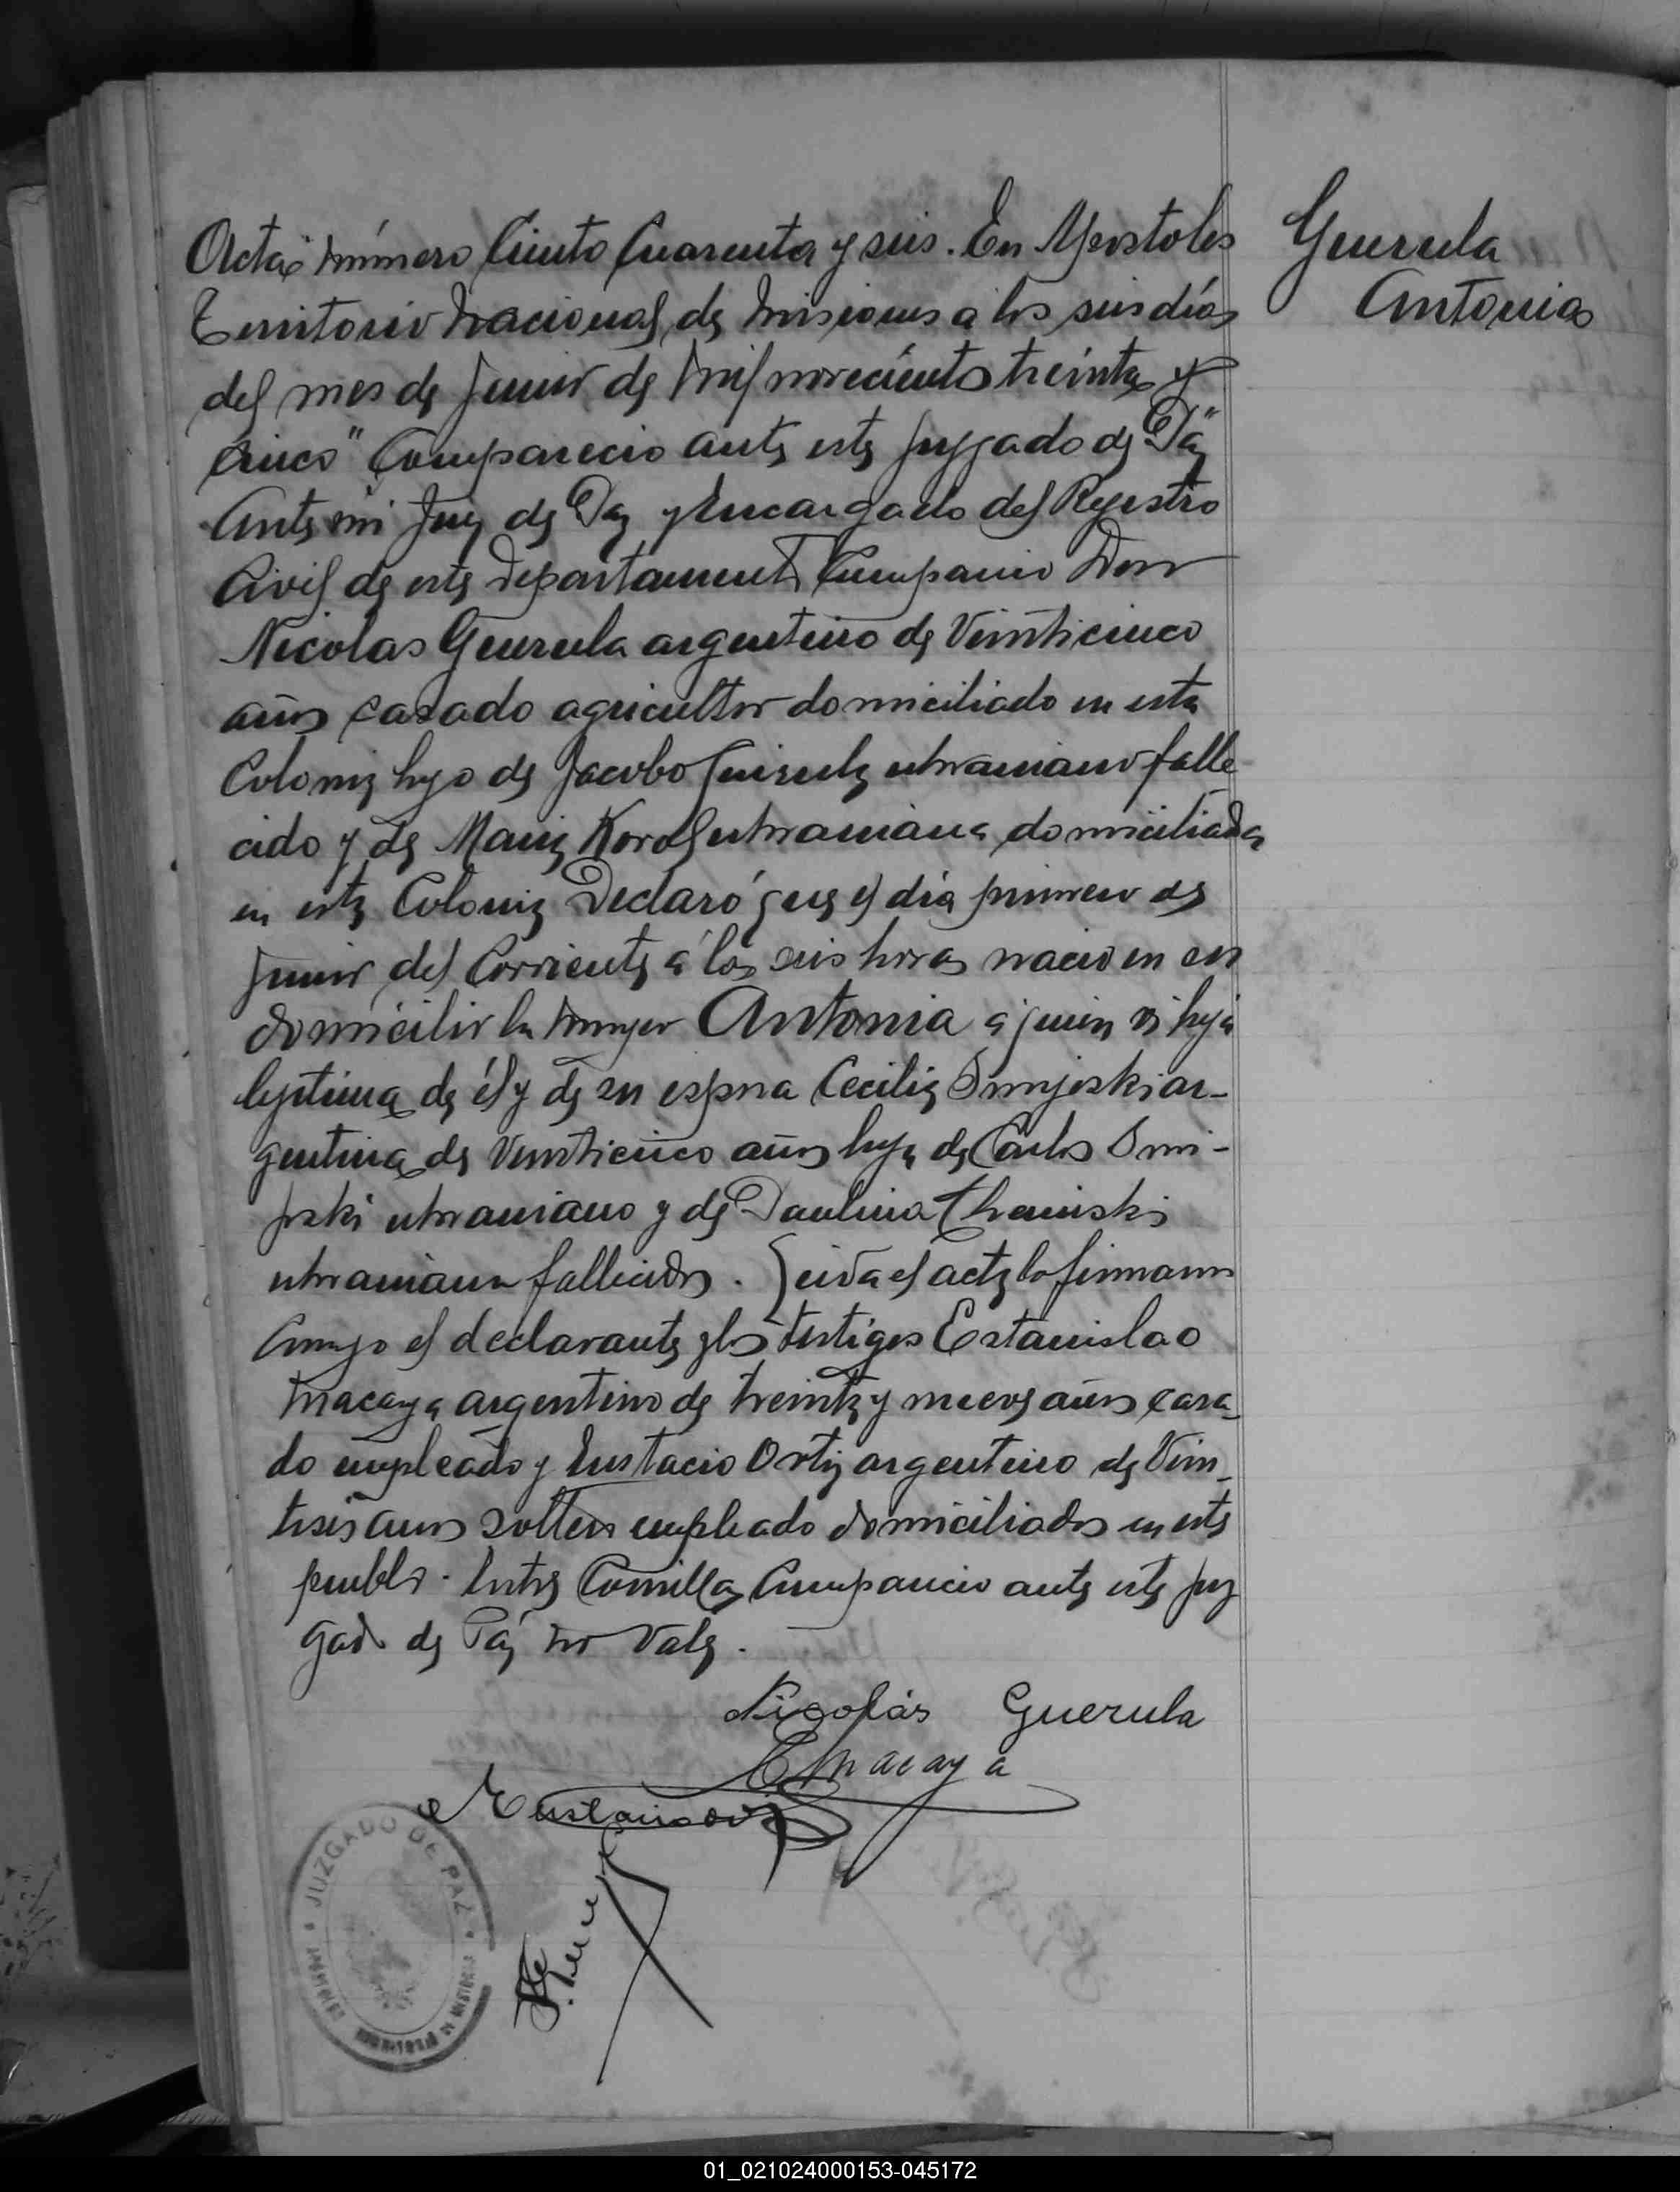 Guerula
Antonia
Acta número Ciento Cuarenta y seis. En Apostoles
Territorio Nacional de Misiones a los seis días
del mes de Junio de mil novecientos treinta y
cinco "Comparecio ante este Juzgado de Páz"
Ante mi Juez de Paz y Encargado del Registro
Civil de este Departamento Comparecio Don
Nicolas Guerula argentino de Veinticinco
años casado agricultor domiciliado en esta
Colonia hijo de Jacobo Guerula ukraniano falle-
cido y de Maria Korol ukraniana domiciliada
en esta Colonia Declaró que el día primero de
Junio del Corriente á las seis horas nacio en su
domicilio la mujer Antonia a quien es hija
legitima de él y de su esposa Cecilia ar-
gentina de Veinticinco años hija de Carlos
ukraniano y de Paulina
ukraniana fallecidos. Leida el acta la firmaron
Conmigo el declarante y los testigos Estanislao
Macaya argentino de treinta y nueve años casa-
do empleado y Eustacio Ortiz argentino de Vein-
tiseis años soltero empleado domiciliados en este
pueblo. Entre Comillas Comparecio ante este Juz
gado de Páz no Vale.
Nicolás Guerula
E Macaya
Eustacio
JUZGADO DE PAZ
01_021024000153-045172